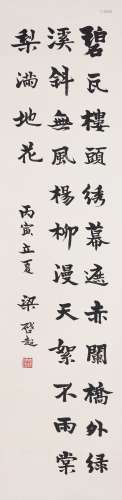 碧瓦樓頭綉幕遮赤闌橋外綠
溪斜無風楊柳漫天絮不雨棠
梨滿地花
丙寅立夏 梁啓超